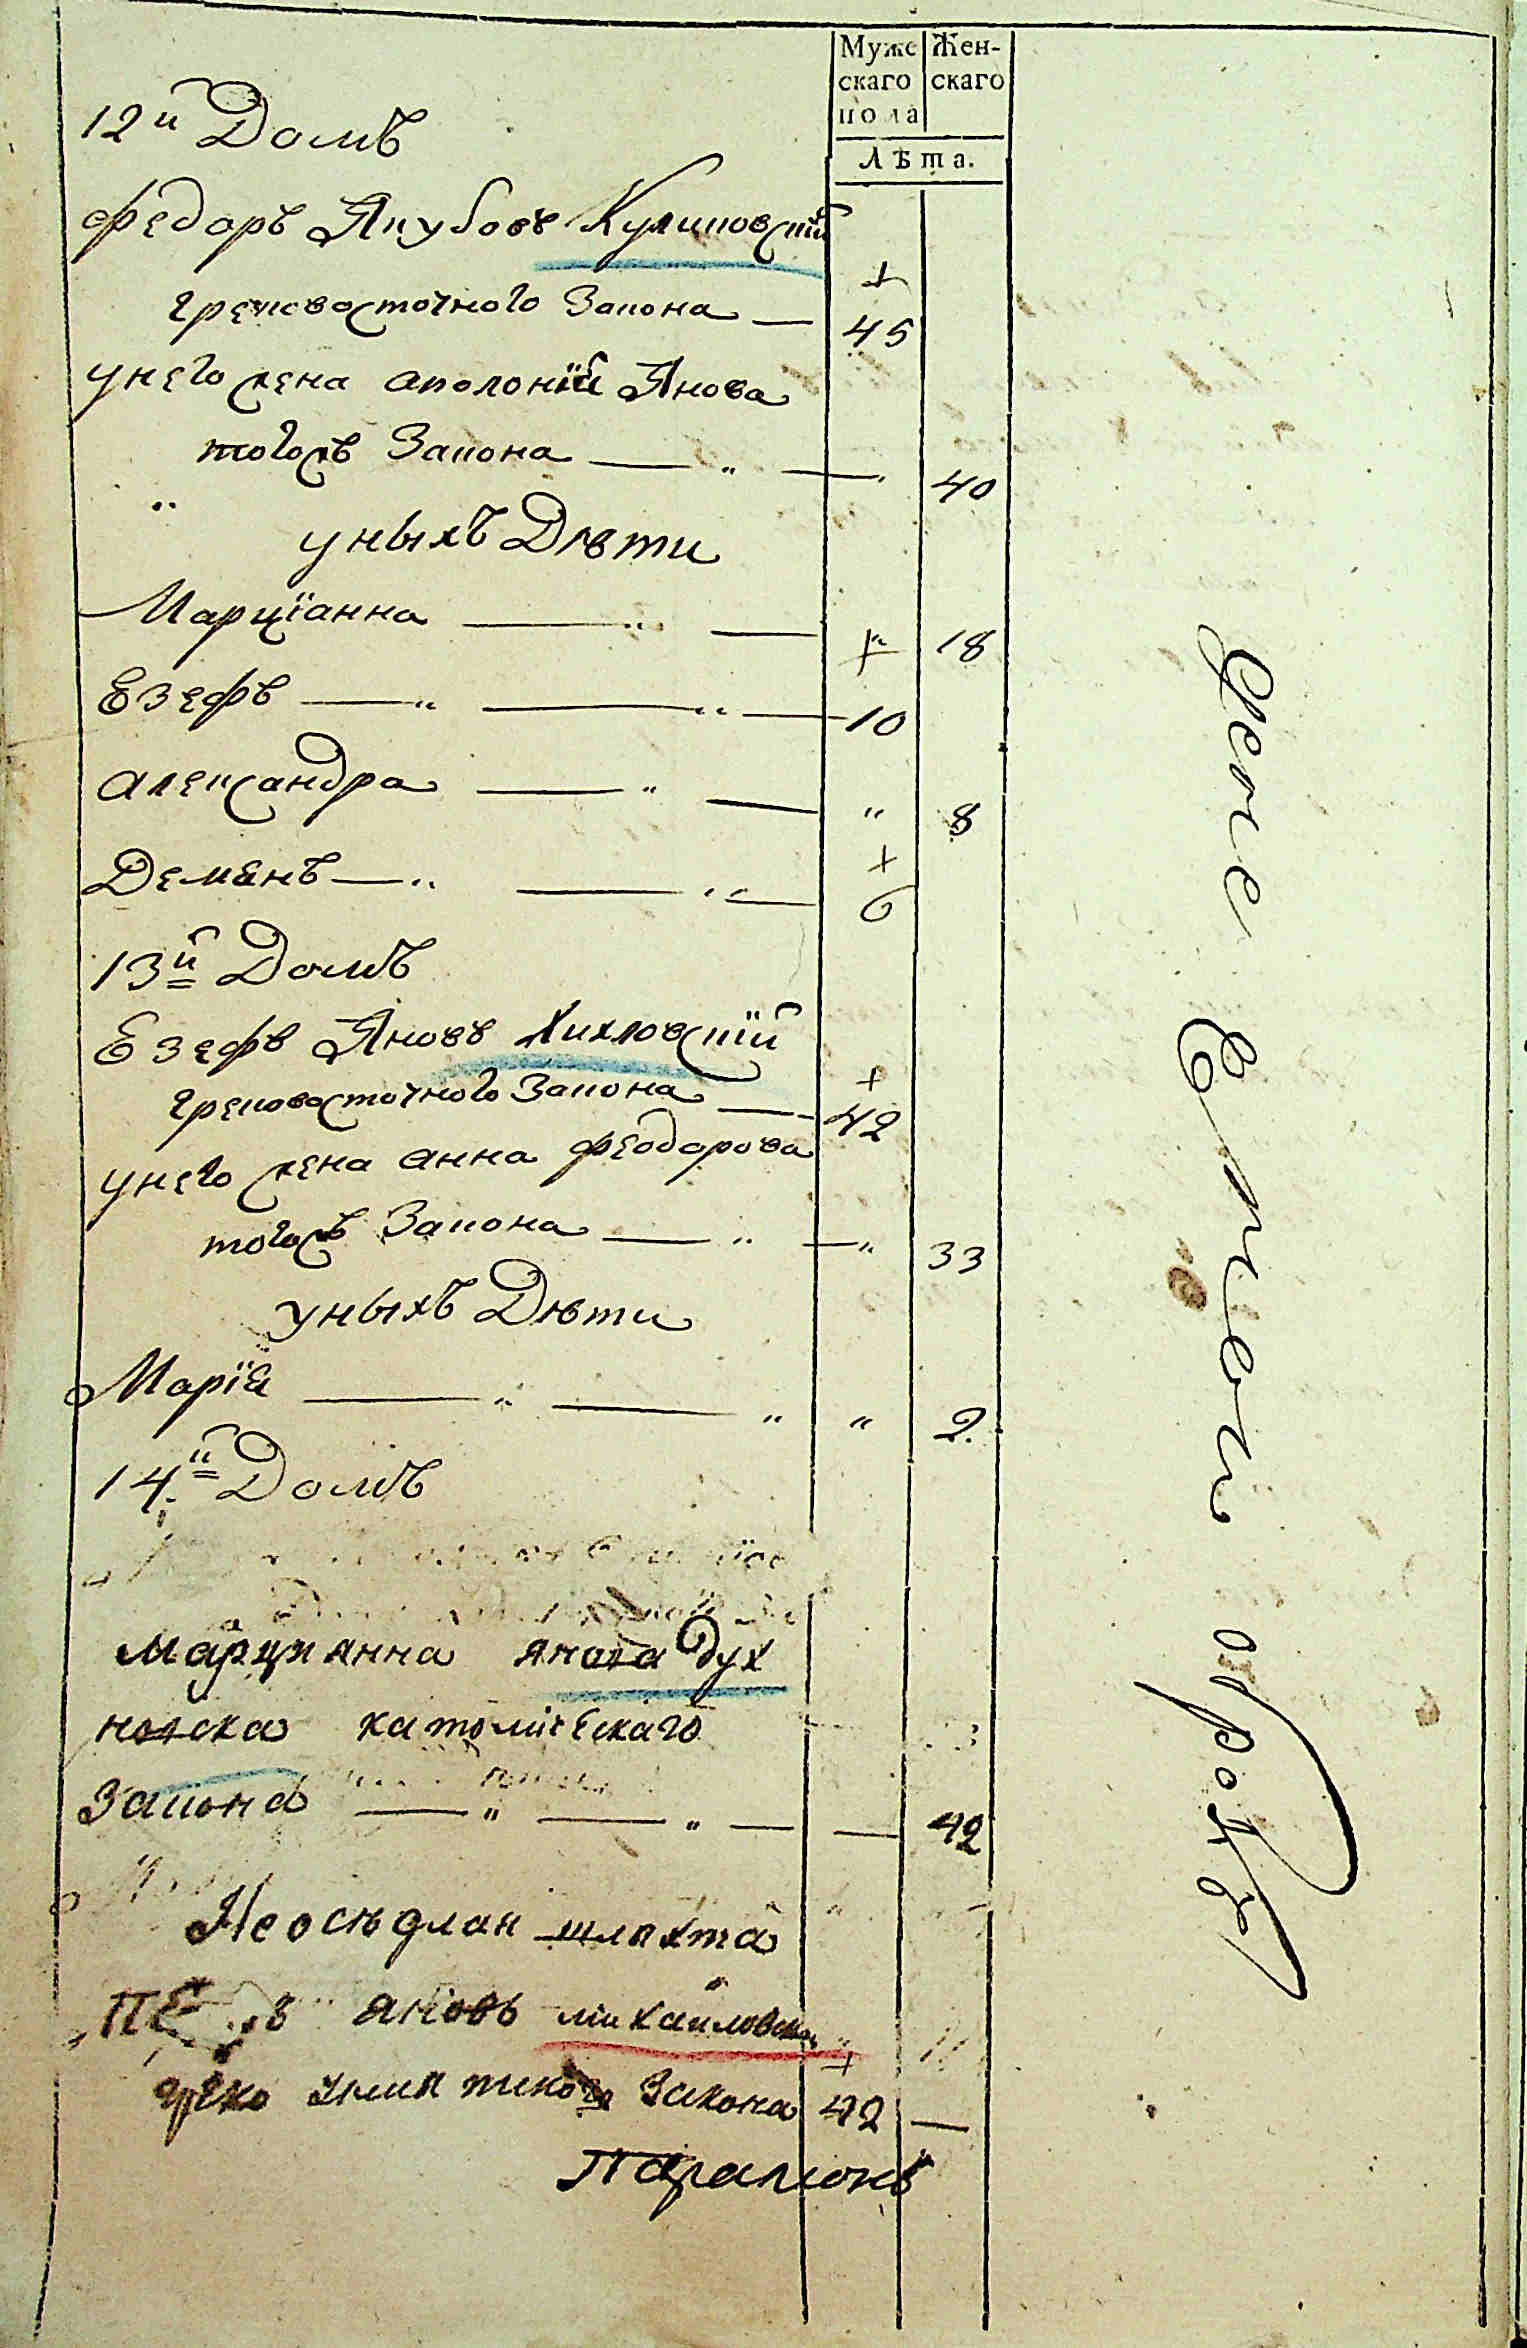 Муже Жен-
скаго скаго
пола
Лѣта.
12й Домъ
Федоръ Якубовъ Куликовскій
грековосточного Закона — 45
унего жена аполонія Янова
тогожъ Закона — „ — „ 40
уныхъ Дѣти
Марціанна — „ — „ 18
Езефъ — „ — „ — 10
александра — „ — „ 8
Демянъ — „ — „ — 6
13й Домъ
Езефъ Яновъ Хихловскій
грековосточного Закона — 42
унего жена анна феодорова
тогожъ Закона — „ — „ 33
уныхъ Дѣти
Марія — „ — „ „ 2.
14й Домъ
Марцианна янова Дух
новска католическаго
Закона — „ — „ — — 42
Неосѣдлая шляхта
яновъ михайловски
греко закона 42 —
Парамонъ